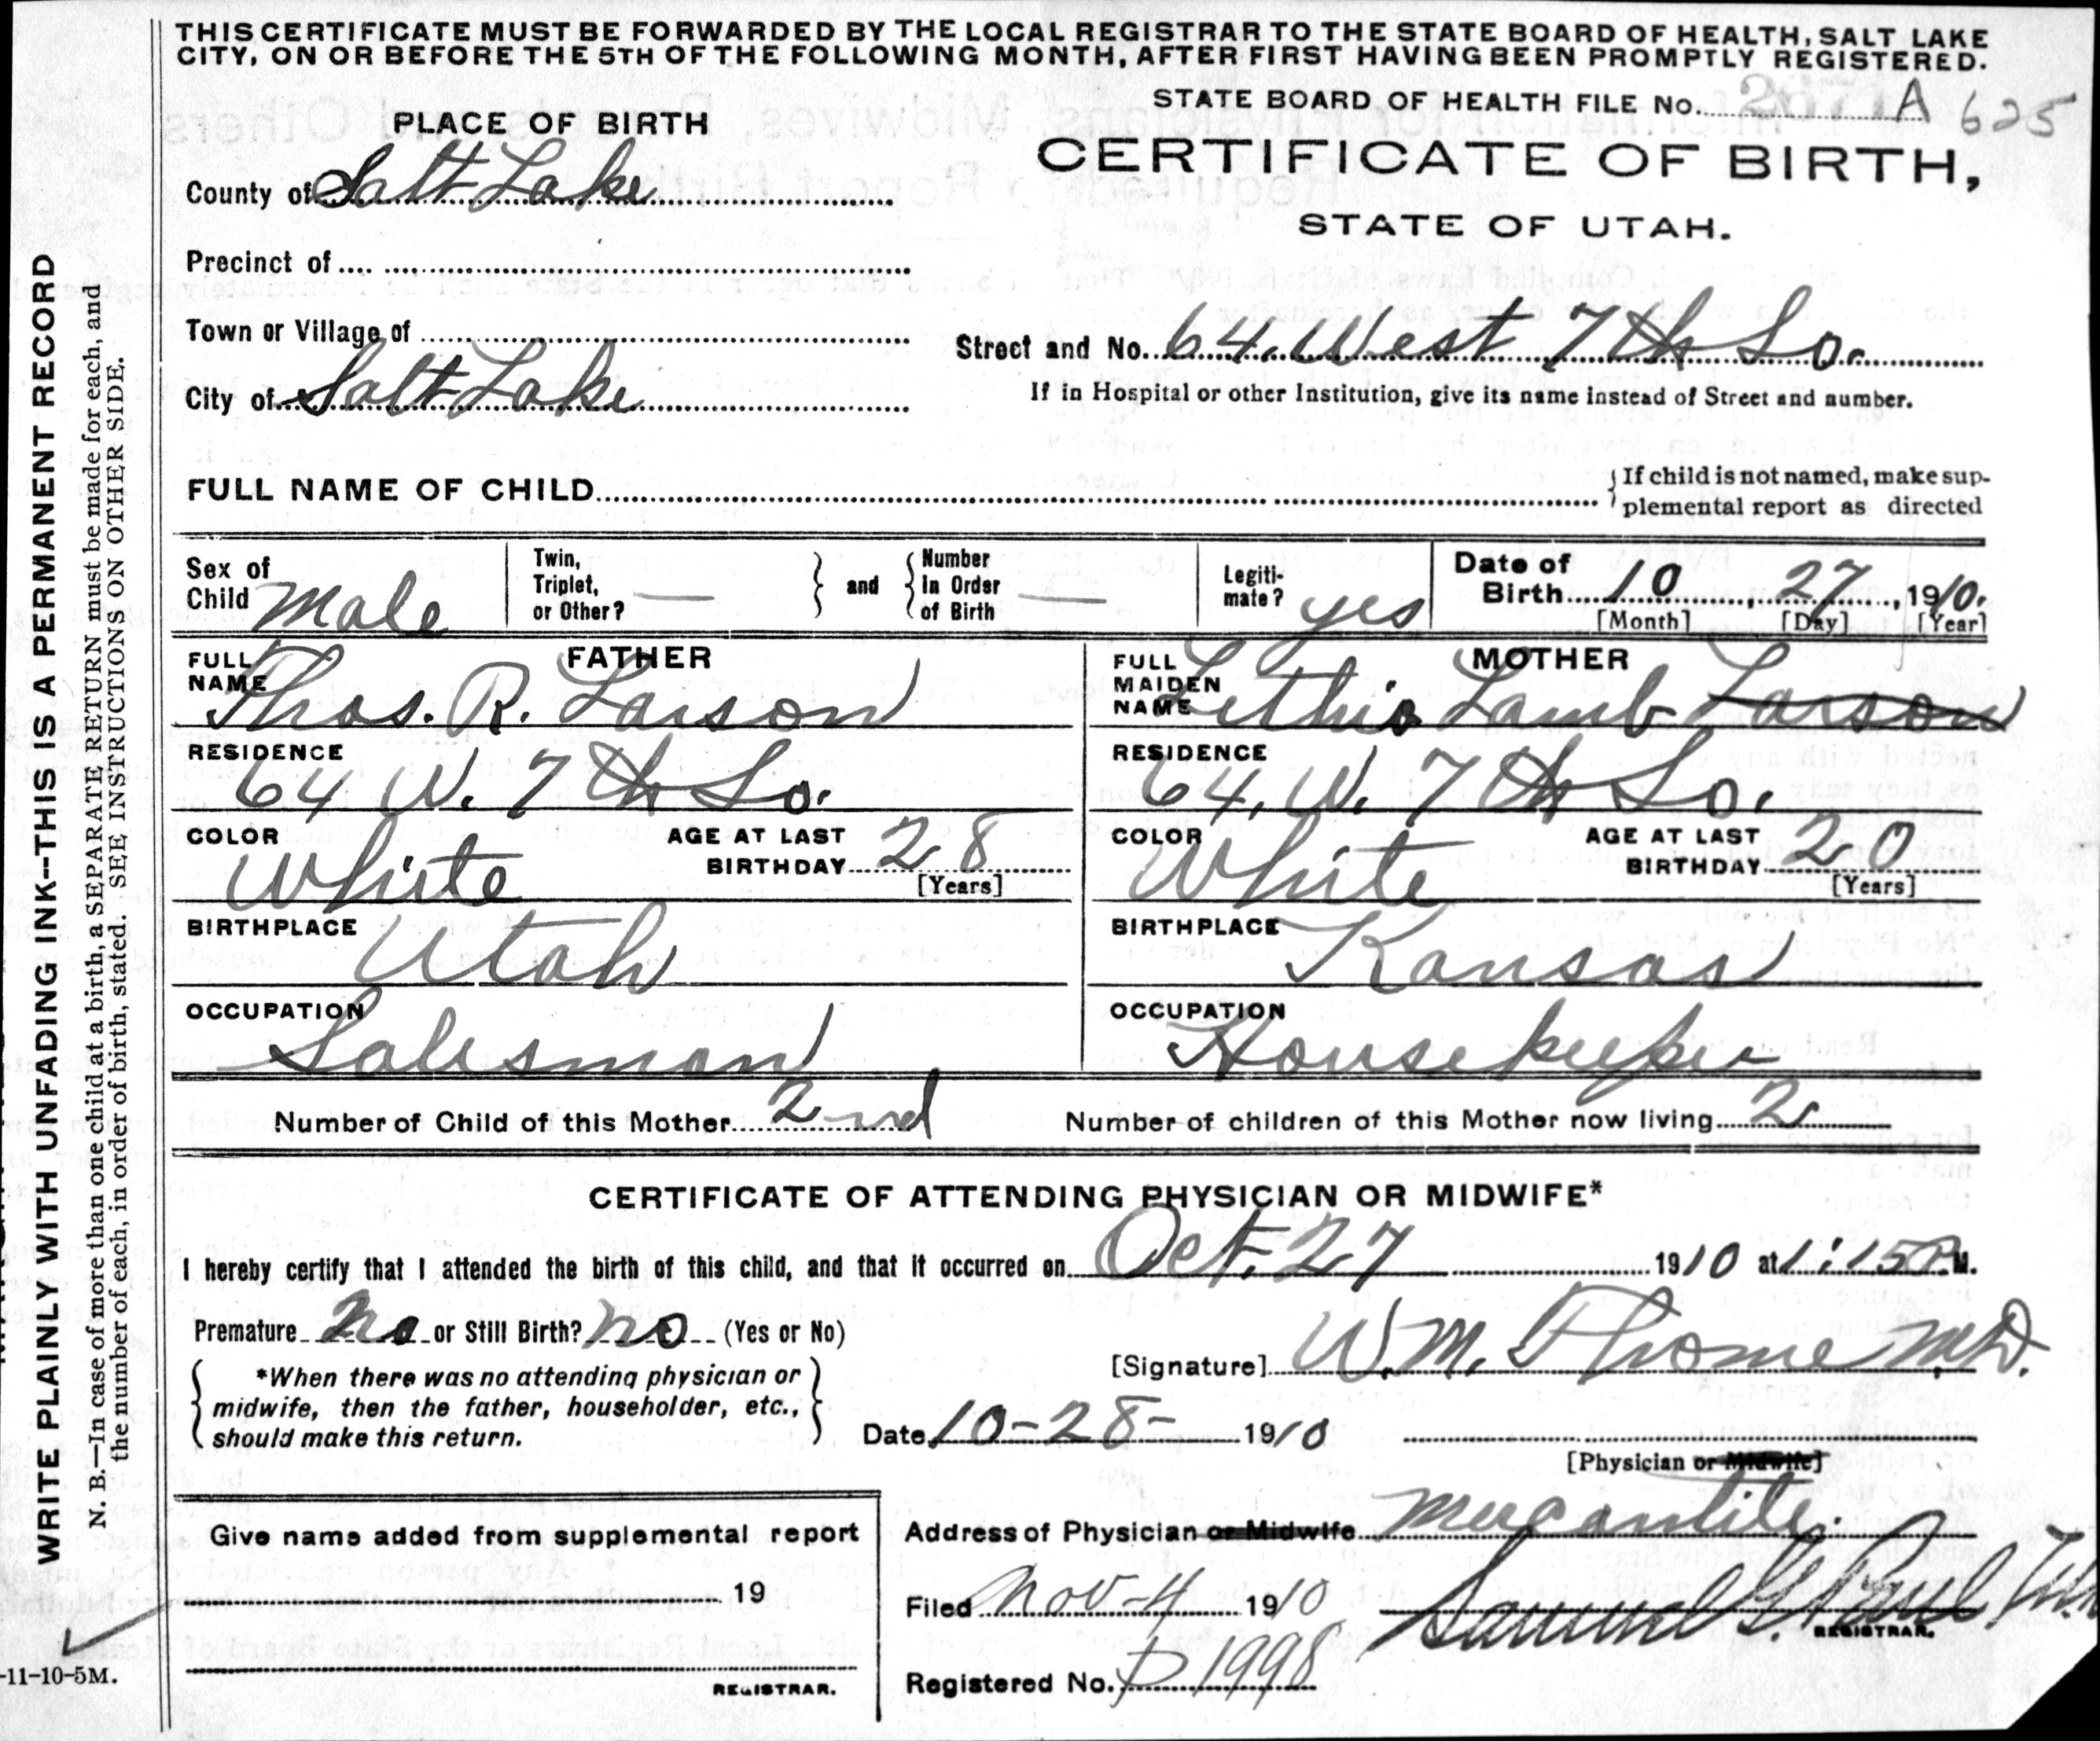 THIS CERTIFICATE MUST BE FORWARDED BY THE LOCAL REGISTRAR TO THE STATE BOARD OF HEALTH, SALT LAKE
CITY, ON OR BEFORE THE 5TH OF THE FOLLOWING MONTH, AFTER FIRST HAVING BEEN PROMPTLY REGISTERED.
STATE BOARD OF HEALTH FILE No. A 625
PLACE OF BIRTH
CERTIFICATE OF BIRTH,
STATE OF UTAH.
County of Salt Lake
Precinct of
Town or Village of
Street and No. 64. West 7th So.
City of Salt Lake
If in Hospital or other Institution, give its name instead of Street and number.
FULL NAME OF CHILD
If child is not named, make sup-
plemental report as directed
Sex of Child Male
Twin, Triplet, or Other? —
and
Number In Order of Birth —
Legiti-mate? yes
Date of Birth 10, 27, 1910.
[Month] [Day] [Year]
FATHER
FULL NAME Thos. R. Larson
RESIDENCE 64 W. 7th So.
COLOR White AGE AT LAST BIRTHDAY 28 [Years]
BIRTHPLACE Utah
OCCUPATION Salesman
MOTHER
FULL MAIDEN NAME Lamb Larson
RESIDENCE 64. W. 7th So.
COLOR White AGE AT LAST BIRTHDAY 20 [Years]
BIRTHPLACE Kansas
OCCUPATION Housekeeper
Number of Child of this Mother 2nd Number of children of this Mother now living 2
CERTIFICATE OF ATTENDING PHYSICIAN OR MIDWIFE*
I hereby certify that I attended the birth of this child, and that it occurred on Oct. 27 1910 at 1:15 P.M.
Premature no or Still Birth? no (Yes or No)
*When there was no attending physician or
midwife, then the father, householder, etc.,
should make this return.
[Signature] W. M. M.D.
Date 10-28- 1910
[Physician or Midwife]
Address of Physician or Midwife Mercantile.
Give name added from supplemental report
19
REGISTRAR.
Filed Nov-4 1910
Samuel G. Paul
REGISTRAR.
Registered No. 1998
WRITE PLAINLY WITH UNFADING INK--THIS IS A PERMANENT RECORD
N. B.—In case of more than one child at a birth, a SEPARATE RETURN must be made for each, and
the number of each, in order of birth, stated. SEE INSTRUCTIONS ON OTHER SIDE.
-11-10-5M.